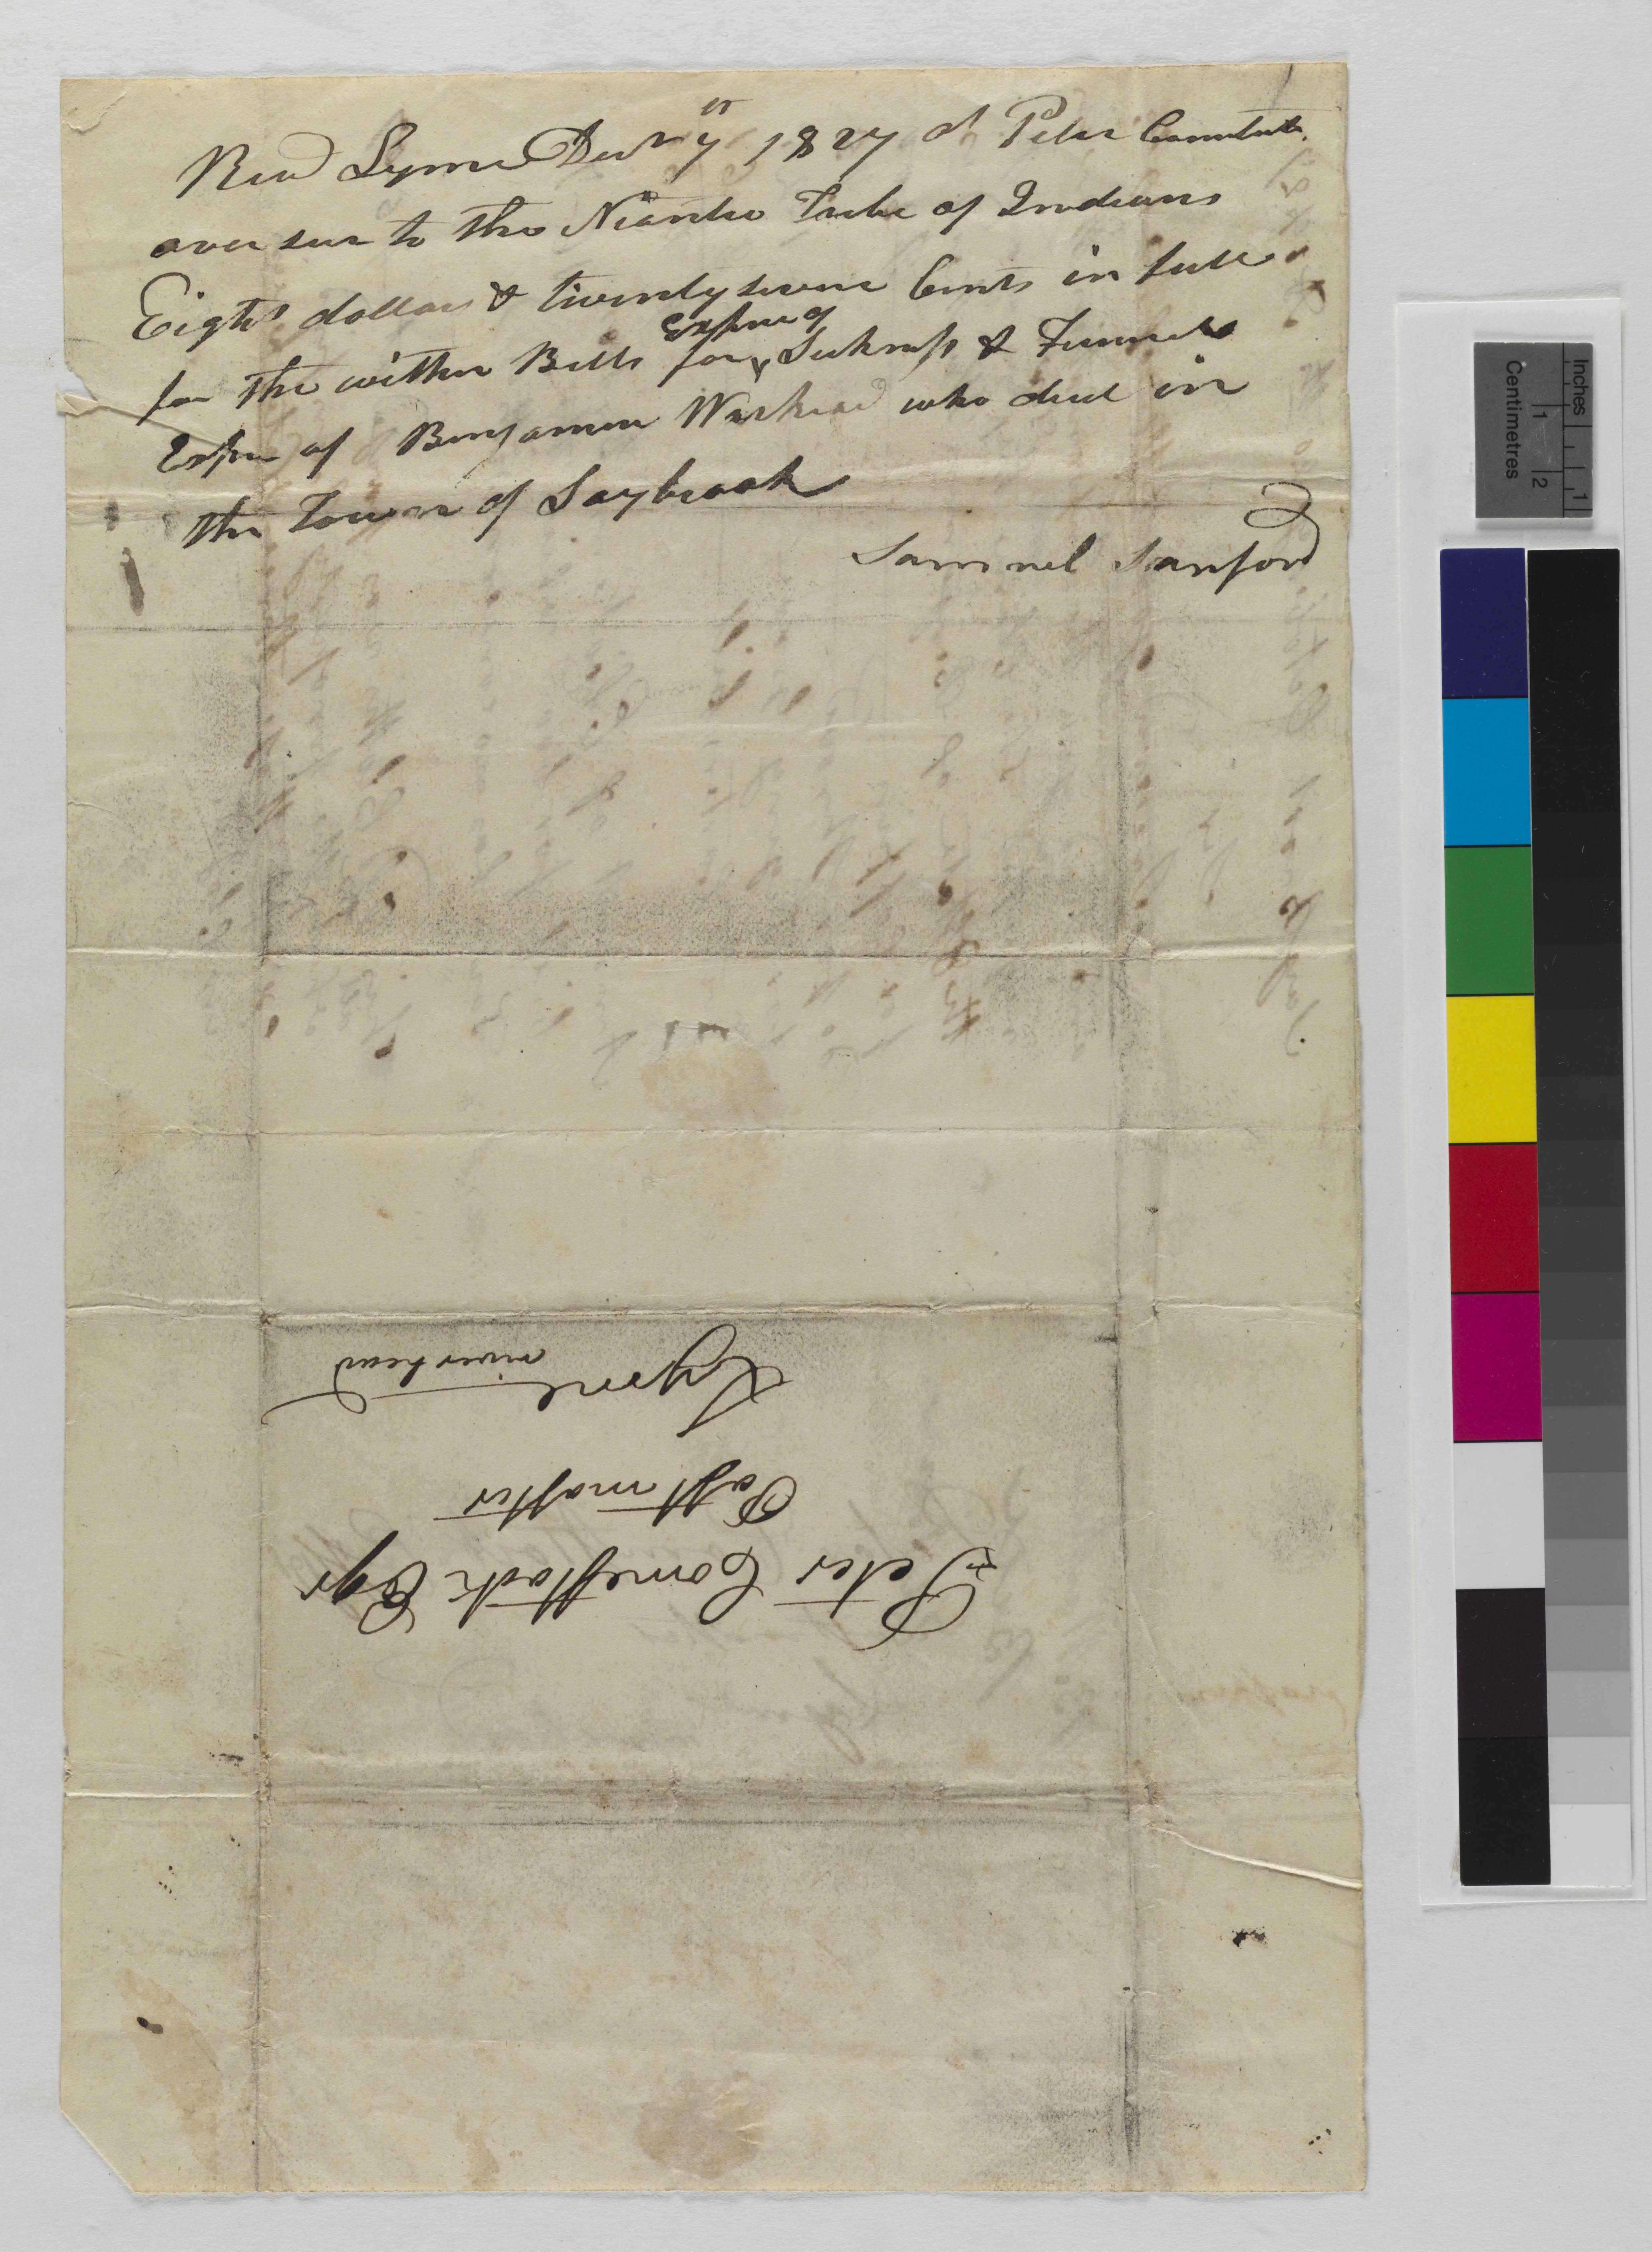 Recd Lyme Decr 7 1827 of Peter Comstock
over seer to the Niantic Tribe of Indians
Eight dollars & twenty seven Cents in full
for the within Bills for Expense of Sickness & Funeral
Expen of Benjamin Waskead who died in
the Town of Saybrook
Samuel Sanford
Peter Comestock Esqr
Postmaster
Lyme
river head
Inches
1
Centimetres
1 2